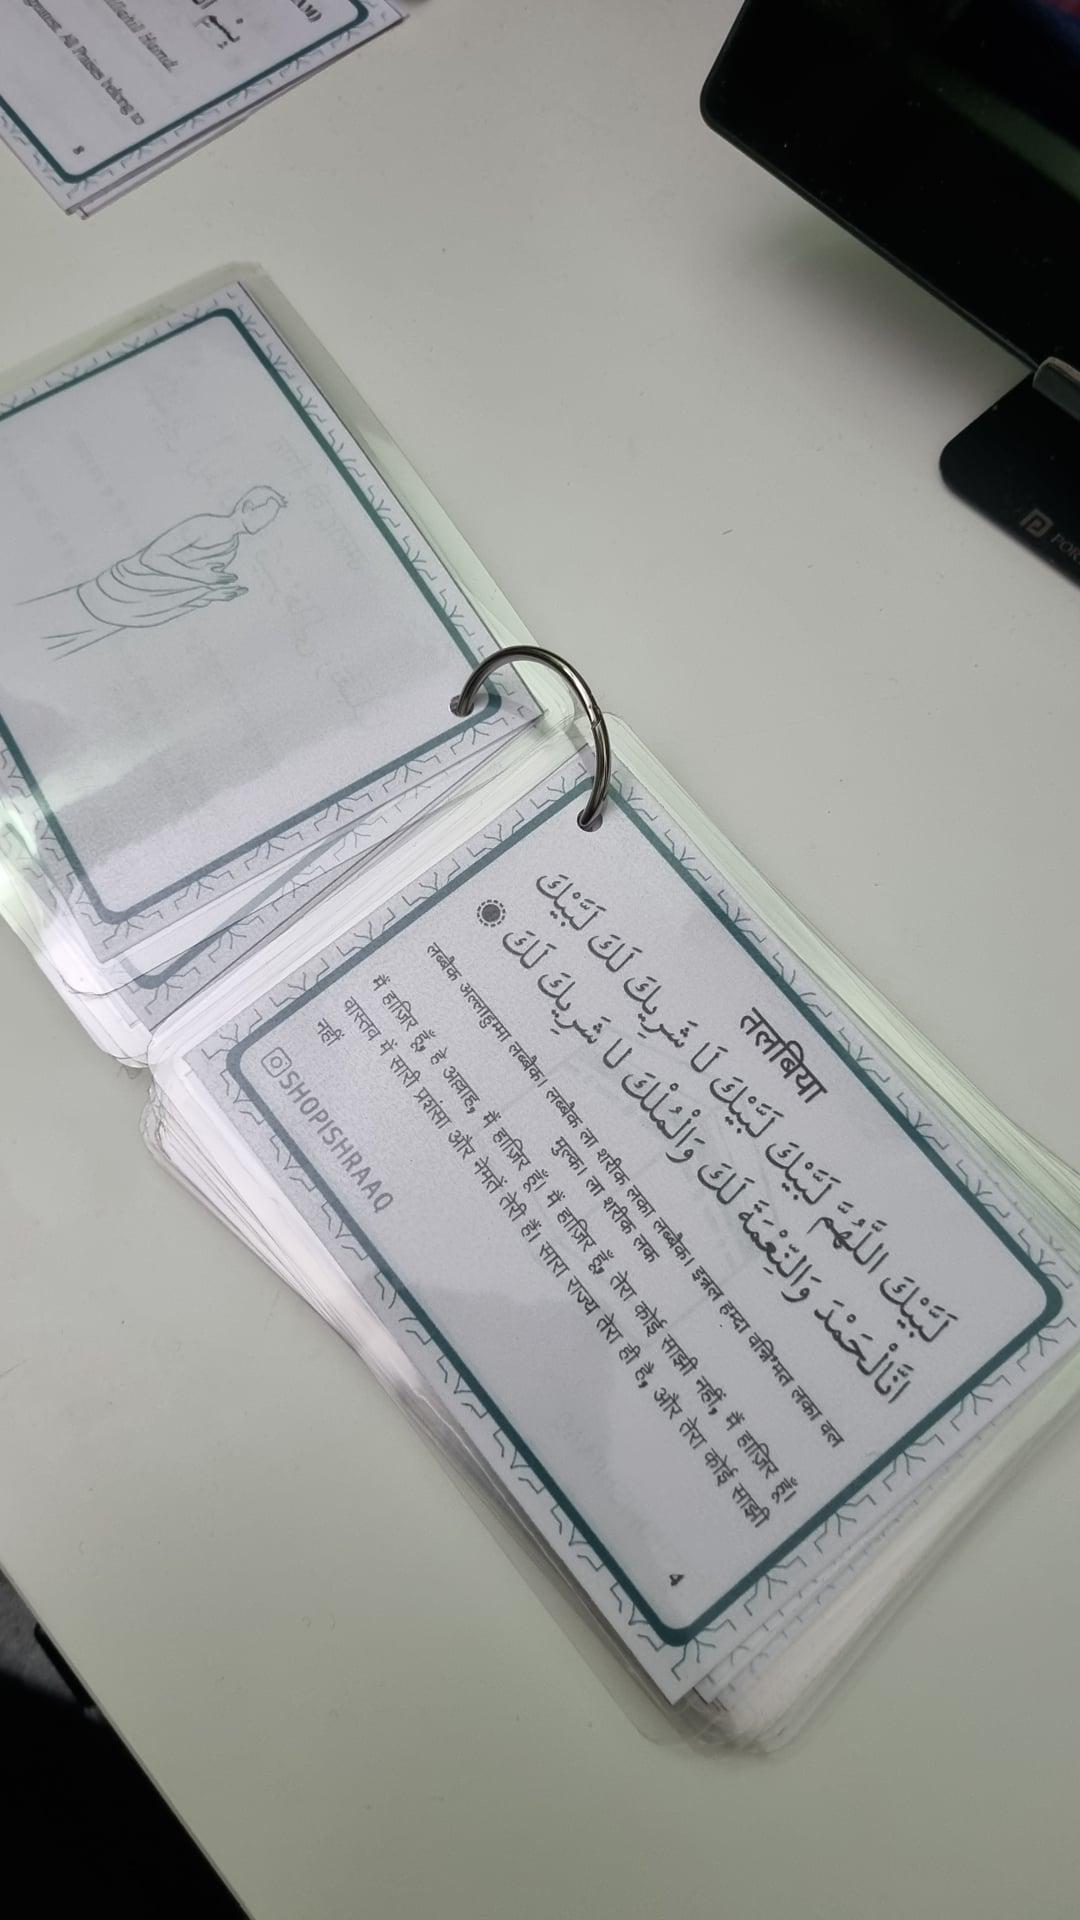 तलबिया
لَبَّيْكَ اللَّهُمَّ لَبَّيْكَ لَبَّيْكَ لَا شَرِيكَ لَكَ لَبَّيْكَ
انَّالْحَمْدَ وَالنِّعْمَةَ لَكَ وَالْمُلْكَ لَا شَرِيكَ لَكَ
लब्बैक अल्लाहुम्मा लब्बैक। लब्बैक ला शरीक लका लब्बैक। इन्नल हम्दा वन्निʼमत लका वल
मुल्क। ला शरीक लक
मैं हाज़िर हूँ, हे अल्लाह, मैं हाज़िर हूँ। मैं हाज़िर हूँ, तेरा कोई साझी नहीं, मैं हाज़िर हूँ।
वास्तव में सारी प्रशंसा और नेमतें तेरी हैं। सारा राज्य तेरा ही है, और तेरा कोई साझी
नहीं
SHOPISHRAAQ
4
Hamd.
greatest. All Praises belong to
8
POR